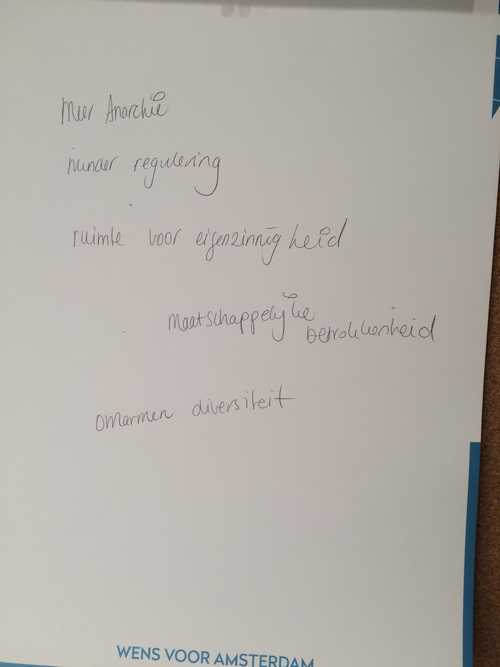 Meer Anarchie
minder regulering
ruimte voor eigenzinnigheid
maatschappelijke
betrokkenheid
omarmen diversiteit
WENS VOOR AMSTERDAM